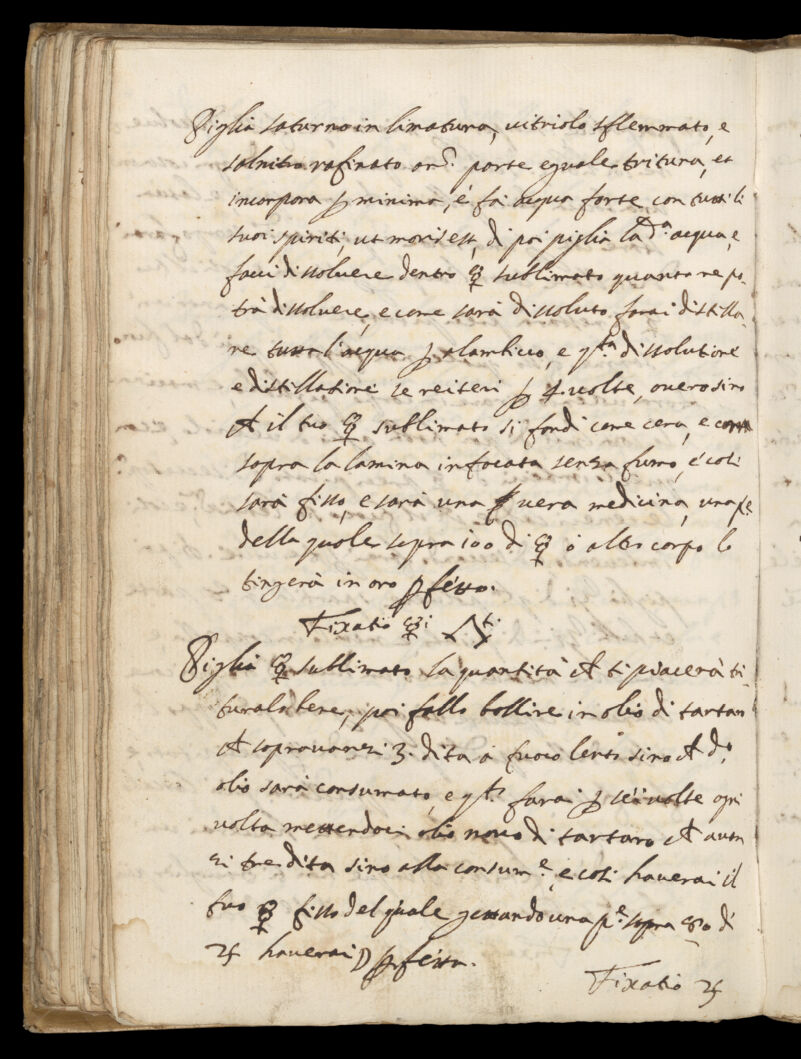 Piglia saturno in limatura, uitriolo sflemmato, e
salnitro rafinato an. parte eguale tritura, et
incorpora ꝑ minima, é fai acqua forte con tutti li
suoi spiriti, ut moris est, di poi piglia la d.ᵃ acqua, e
facci dissoluere dentro ☿ sublimato quanto ne po-
trà dissoluere, e come sarà dissoluto farai distilla-
re tutta l'acqua ꝑ alambicco, e q.ᵗᵃ dissolutione
e distillatione se reiteri ꝑ 4. uolte, ouero sino
il tuo ☿ sublimato si fondi come cera, e
sopra la lamina infocata senza fumo, é cosi
sarà fisso, e sarà una uera medicina, una p.ᵉ
della quale sopra 100 di ☿ ó altro corpo lo
tingerà in oro ꝑfetto.
Fixatio ☿i
Piglia ☿ sublimato la quantità ti piacerà tri-
turalo bene, poi fallo bollire in olio di tartaro
soprauanzi 3. dita à fuoco lento sino d.º
olio sarà consumato, e q.ᵗº farai ꝑ sei uolte ogni
uolta mettendoci olio nouo di tartaro auan
zi tre dita sino alla consum.ᵉ, e cosi hauerai il
tuo ☿ fisso del quale gettando una p.ᵉ sopra di
♃ hauerai ☽ ꝑfetta.
Fixatio ♃